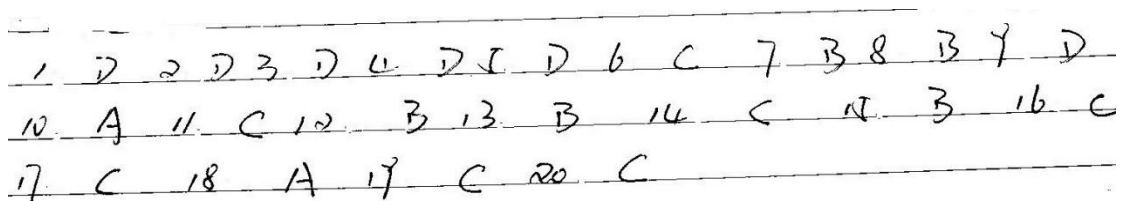 1 D 2 D 3 D 4 D 5 D 6 C 7 B 8 B 9 D
10 A 11 C 12 B 13 B 14 C 15 B 16 C
17 C 18 A 19 C 20 C